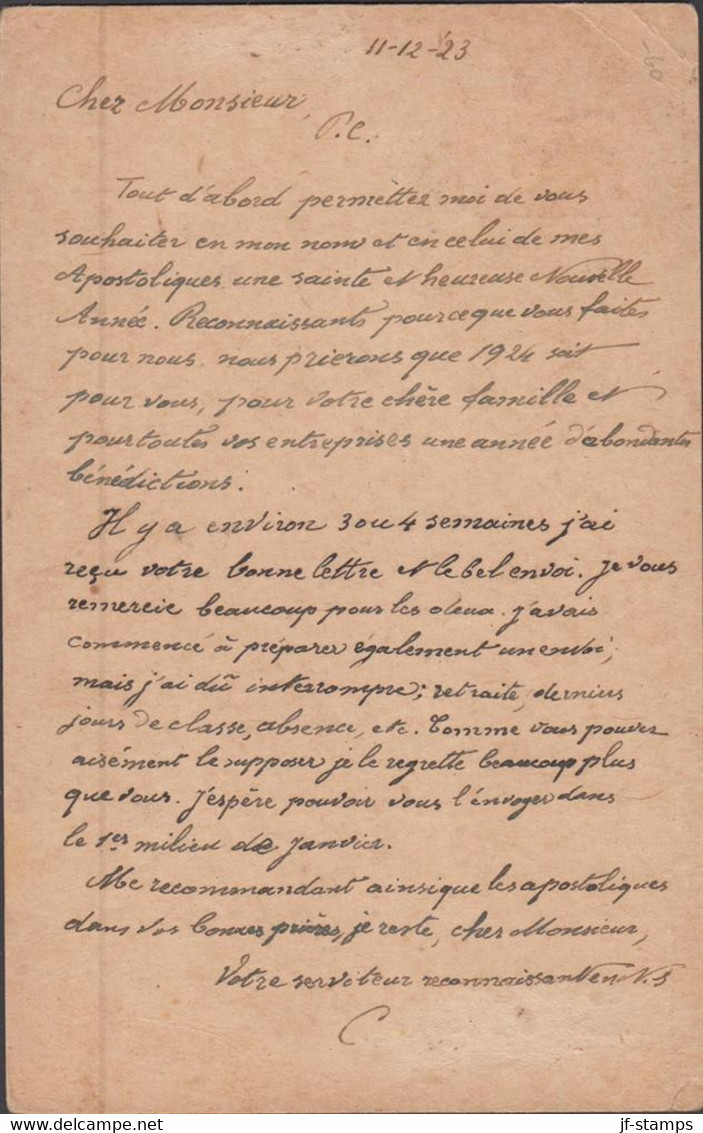 11-12-23
Cher Monsieur,
P.C.
Tout d'abord permèttez moi de vous
souhaiter en mon nom et en celui de mes
Apostoliques une sainte et heureuse Nouvelle
Année. Reconnaissants pour ce que vous faites
pour nous nous prierons que 1924 soit
pour vous, pour votre chère famille et
pour toutes vos entreprises une année d'abondantes
bénédictions.
Il y a environ 3 ou 4 semaines j'ai
reçu votre bonne lettre et le bel envoi. Je vous
remercie beaucoup pour les deux. J'avais
commencé à préparer également un envoi,
mais j'ai dû interrompre; retraite, derniers
jours de classe, absence, etc. Comme vous pouvez
aisément le supposer je le regrette beaucoup plus
que vous. J'espère pouvoir vous l'envoyer dans
le 1er milieu de Janvier.
Me recommandant ainsi que les apostoliques
dans vos bonnes prières, je reste, cher Monsieur,
Votre serviteur reconnaissant en N.S
jf-stamps